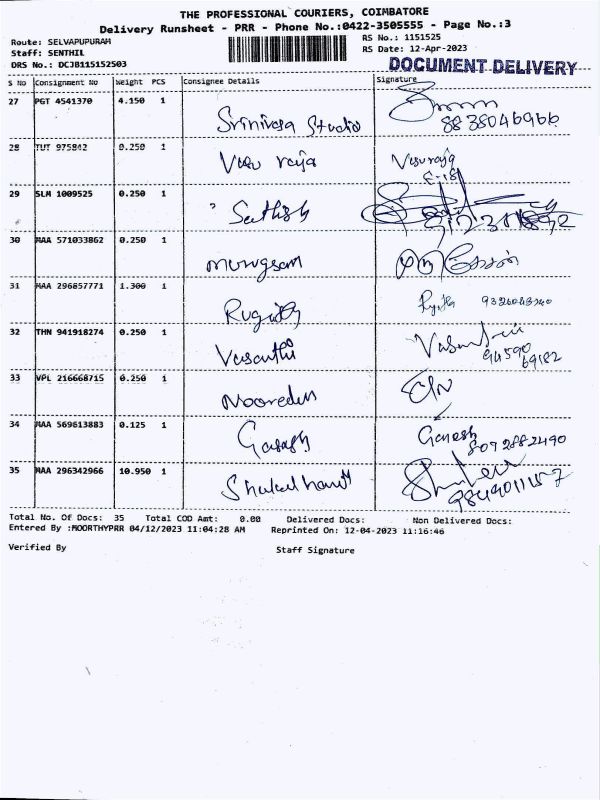 THE PROFESSIONAL COURIERS, COIMBATORE
Delivery Runsheet - PRR - Phone No.:0422-3505555 - Page No.:3
Route: SELVAPUPURAM
RS No.: 1151525
Staff: SENTHIL
RS Date: 12-Apr-2023
DRS No.: DCJB115152503
DOCUMENT DELIVERY
S No Consignment No Weight PCS Consignee Details Signature
27 PGT 4541370 4.150 1
Srinivasa Studio 8838046966
28 TUT 975842 0.250 1
Vasu raja Vasuraja
29 SLM 1009525 0.250 1
Sathish
30 MAA 571033862 0.250 1
murugesan முருகேசன்
31 MAA 296857771 1.300 1
32 THN 941918274 0.250 1
Vasanthi 94590
69182
33 VPL 216668715 0.250 1
34 MAA 569613883 0.125 1
Ganesh Ganesh
8072882490
35 MAA 296342966 10.950 1
Total No. Of Docs: 35 Total COD Amt: 0.00 Delivered Docs: Non Delivered Docs:
Entered By :MOORTHYPRR 04/12/2023 11:04:28 AM Reprinted On: 12-04-2023 11:16:46
Verified By Staff Signature